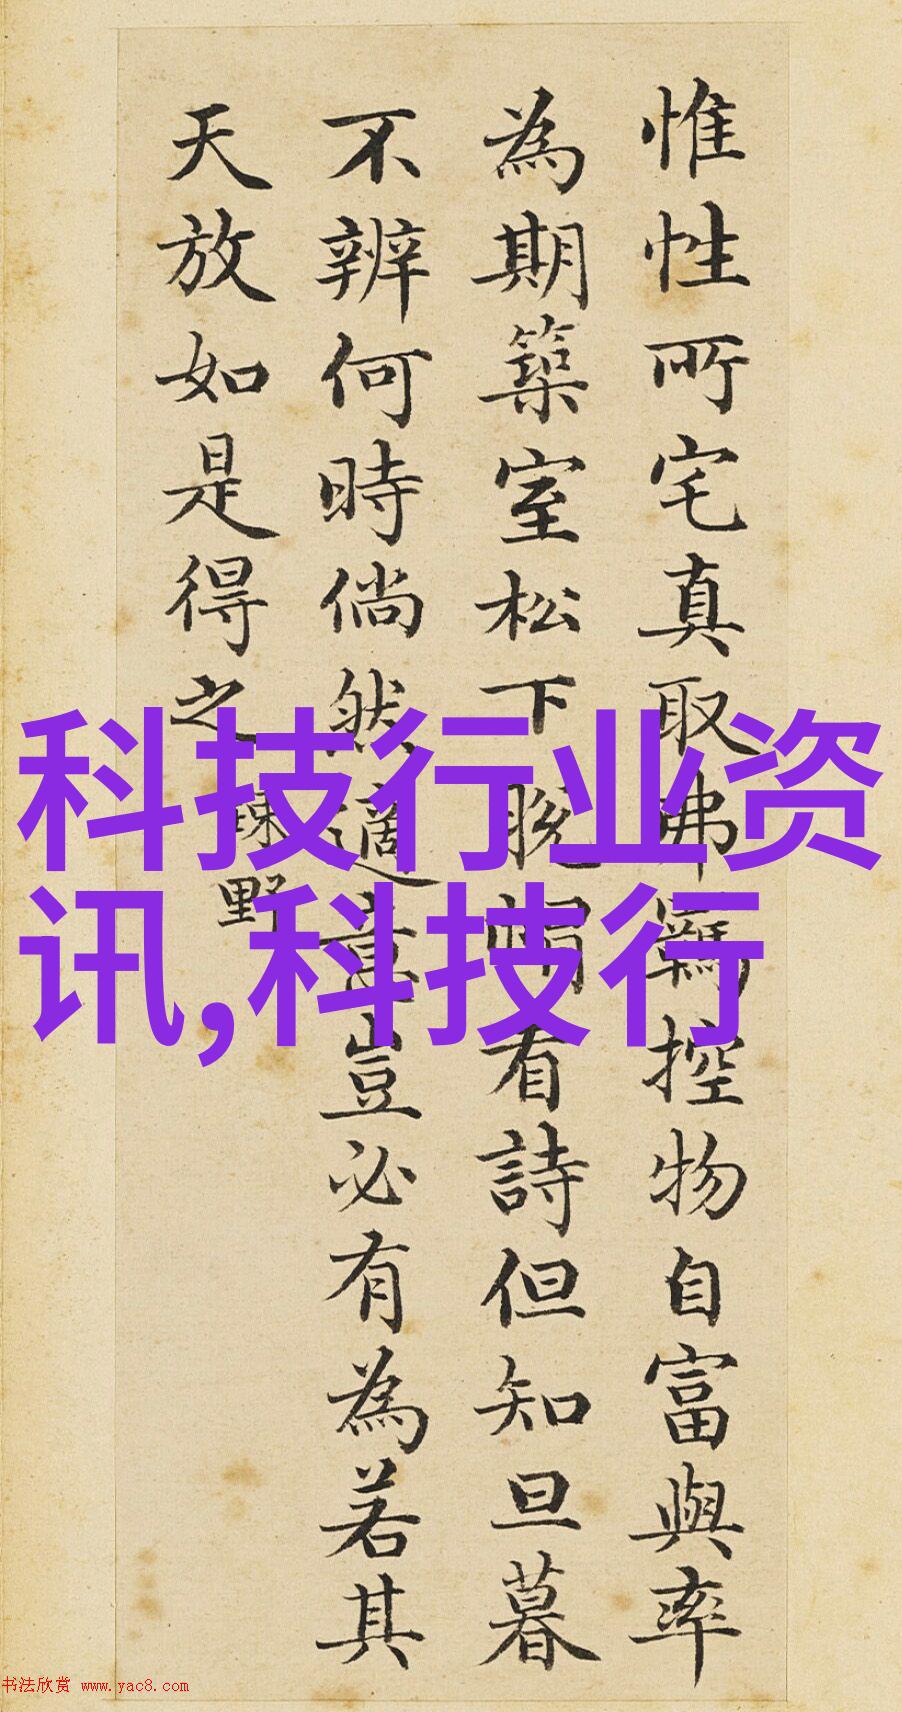 惟性所宅真取弗羈控物自富與率
為期築室松下脫帽看詩但知旦暮
不辨何時倘然適意豈必有為若其
天放如是得之
疎野
科技行业资
讯,科技行
书法欣赏 www.yac8.com